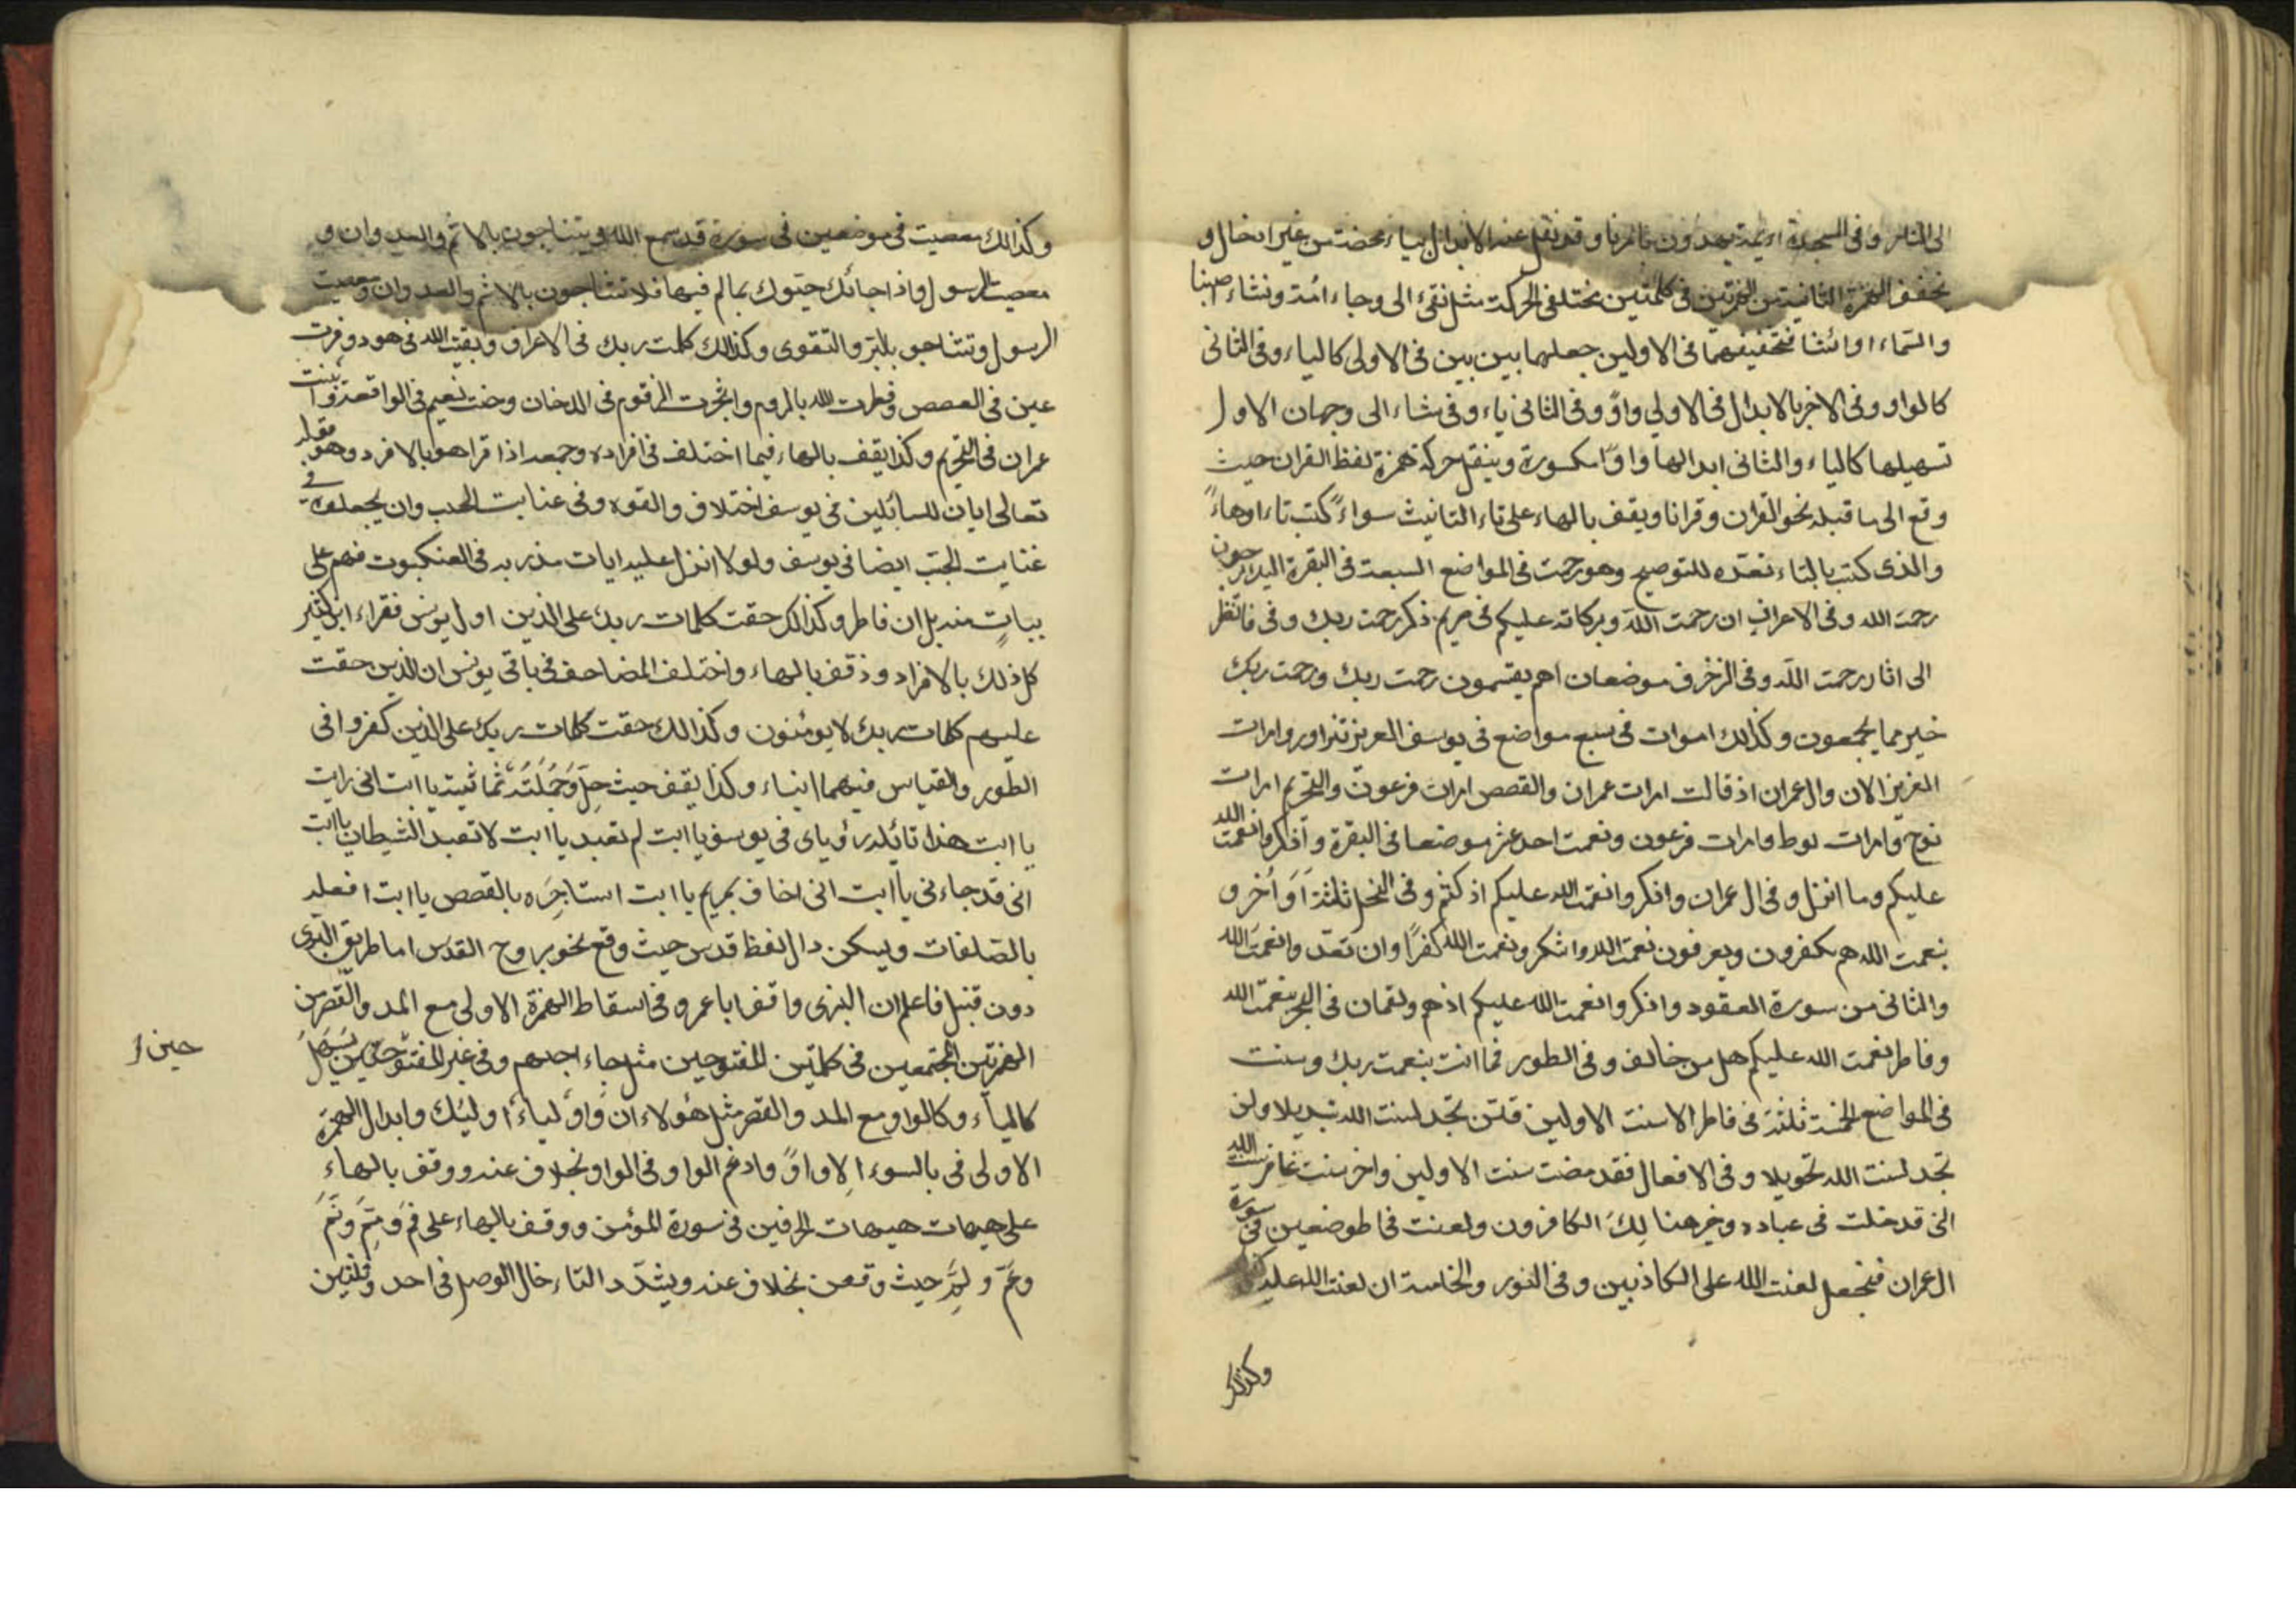 الى النار وفى السجدة ائمة يهدون بامرنا وقد نقل عند الابدال بياء محضة من غير ادخال و
نخفف الهمزة الثانية من الهمزتين فى كلمتين مختلفى الحركة مثل تفىء الى وجاء امة ونشاء اصبنا
والسماء اوائتنا فتخفيفهما فى الاولين جعلها بين بين فى الاولى كالياء وفى الثانى
كالواو وفى الاخر بالابدال فى الاولى واوً وفى الثانى ياء وفى يشاء الى وجهان الاول
تسهيلها كالياء والثانى ابدالها واوًا مكسورة وينقل حركة همزة لفظ القران حيث
وقع الى ما قبله نحو القران وقرانا ويقف بالهاء على تاء التانيث سواءً كتب تاء اوهاءً
والذى كتب بالتاء نعده للتوضيح وهو رحمت فى المواضع السبعة فى البقرة اليك يرجون
رحمت الله وفى الاعراف ان رحمت الله وبركاته عليكم فى مريم ذكر رحمت ربك وفى فانظر
الى اثار رحمت الله وفى الزخرف موضعان اهم يقسمون رحمت ربك ورحمت ربك
خير مما يجمعون وكذالك امرات فى سبع مواضع فى يوسف العزيز تتراور وامرات
العزيز الان وال عمران اذ قالت امرات عمران والقصص امرات فرعون والتحريم امرات
نوح وامرات لوط وامرات فرعون ونعمت احد عشر موضعا فى البقرة واذكروا نعمت الله
عليكم وما انزل وفى ال عمران واذكروا نعمت الله عليكم اذ كنتم وفى النحل ثلثة اَوَاُخر و
بنعمت الله هم يكفرون ويعرفون نعمت الله واشكرو نعمت الله كفرًا وان تعدوا نعمت الله
والثانى من سورة العقود واذكروا نعمت الله عليكم اذهم ولقمان فى البحر بنعمت الله
وفاطر نعمت الله عليكم هل من خالف وفى الطور فما انت بنعمت ربك وسنت
فى المواضع الخمسة ثلثة فى فاطر الا سنت الاولين فلن تجد لسنت الله تبديلا ولن
تجد لسنت الله تحويلا وفى الافعال فقد مضت سنت الاولين واخر سنت غافر سنت الله
التى قد خلت فى عباده وخرهنا لك الكافرون ولعنت فى موضعين فى سورة
ال عمران فنجعل لعنت الله على الكاذبين وفى النور والخامسة ان لعنت الله عليه
وكذلك
وكذالك معصيت فى موضعين فى سورة قد سمع الله ويتناجون بالاثم والعدوان و
معصيت الرسول واذا جائك حيوك بما لم فيها فلا تتناجون بالاثم والعدوان ومعصيت
الرسول وتناجو بالبر والتقوى وكذالك كلمت ربك فى الاعراف وبقيت الله فى هود وقرت
عين فى القصص وفطرت الله بالروم وشجرت الزقوم فى الدخان وجنت نعيم فى الواقعة وابنت
عمران فى التحريم وكذا يقف بالهاء فيما اختلف فى افراده وجمعه اذا قراهو بالافرد وهو قوله
تعالى ايات للسائلين فى يوسف اختلاف والقوه وفى غنابت الجب وان يجعلوه فى
غنايت الجب ايضا فى يوسف ولولا انزل عليه ايات من ربه فى العنكبوت فهم على
بينات منه بل ان فاطر وكذالك حقت كلمات ربك على الذين اول يونس فقراء ابن كثير
كل ذلك بالافراد وذقف بالهاء واختلف المصاحف فى باقى يونس ان الذين حقت
عليهم كلمات ربك لا يومنون وكذالك حقت كلمات ربك على الذين كفروا فى
الطور والقياس فيهما ابناء وكذا يقف حيث حل وجملته ثمانية يا ابت انى رايت
يا ابت هذا تائلد رؤياى فى يوسف يا ابت لم تعبد يا ابت لا تعبد الشيطان يا ابت
انى قد جاءنى يا ابت انى اخاف بمريم يا ابت استاجره بالقصص يا ابت افعله
بالصلفات ويسكن دال لفظ قدس حيث وقع نحو بروح القدس اما طريق البزى
دون قنبل فاعلم ان البزى وافق ابا عمرو فى اسقاط الهمزة الاولى مع المد والقصر من
الهمزتين المجتمعين فى كلمتين المفتوحين مثل جاء اجلهم وفى غير المفتوحتين يسهل
كالياء وكالواو مع المد والقصر مثل هؤلاء ان واولياء اوليك وابدال الهمزة
الاولى فى بالسوء الا واوً وادغم الواو فى الواو بخلاف عنه ووقف بالهاء
على هيهات هيهات الحرفين فى سورة المؤمن ووقف بالهاء على فمَ وبمَ ومَمَ
وعمَّ ولمَ حيث وقعن بخلاف عنه ويشدد التاء حال الوصل فى احد وثلثين
حين ا